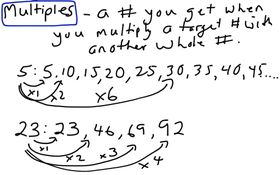 Multiples - a # you get when
you multiply a target # with
another whole #.
5: 5, 10, 15, 20, 25, 30, 35, 40, 45....
x1 x2
x6
23: 23, 46, 69, 92
x1 x2 x3 x4